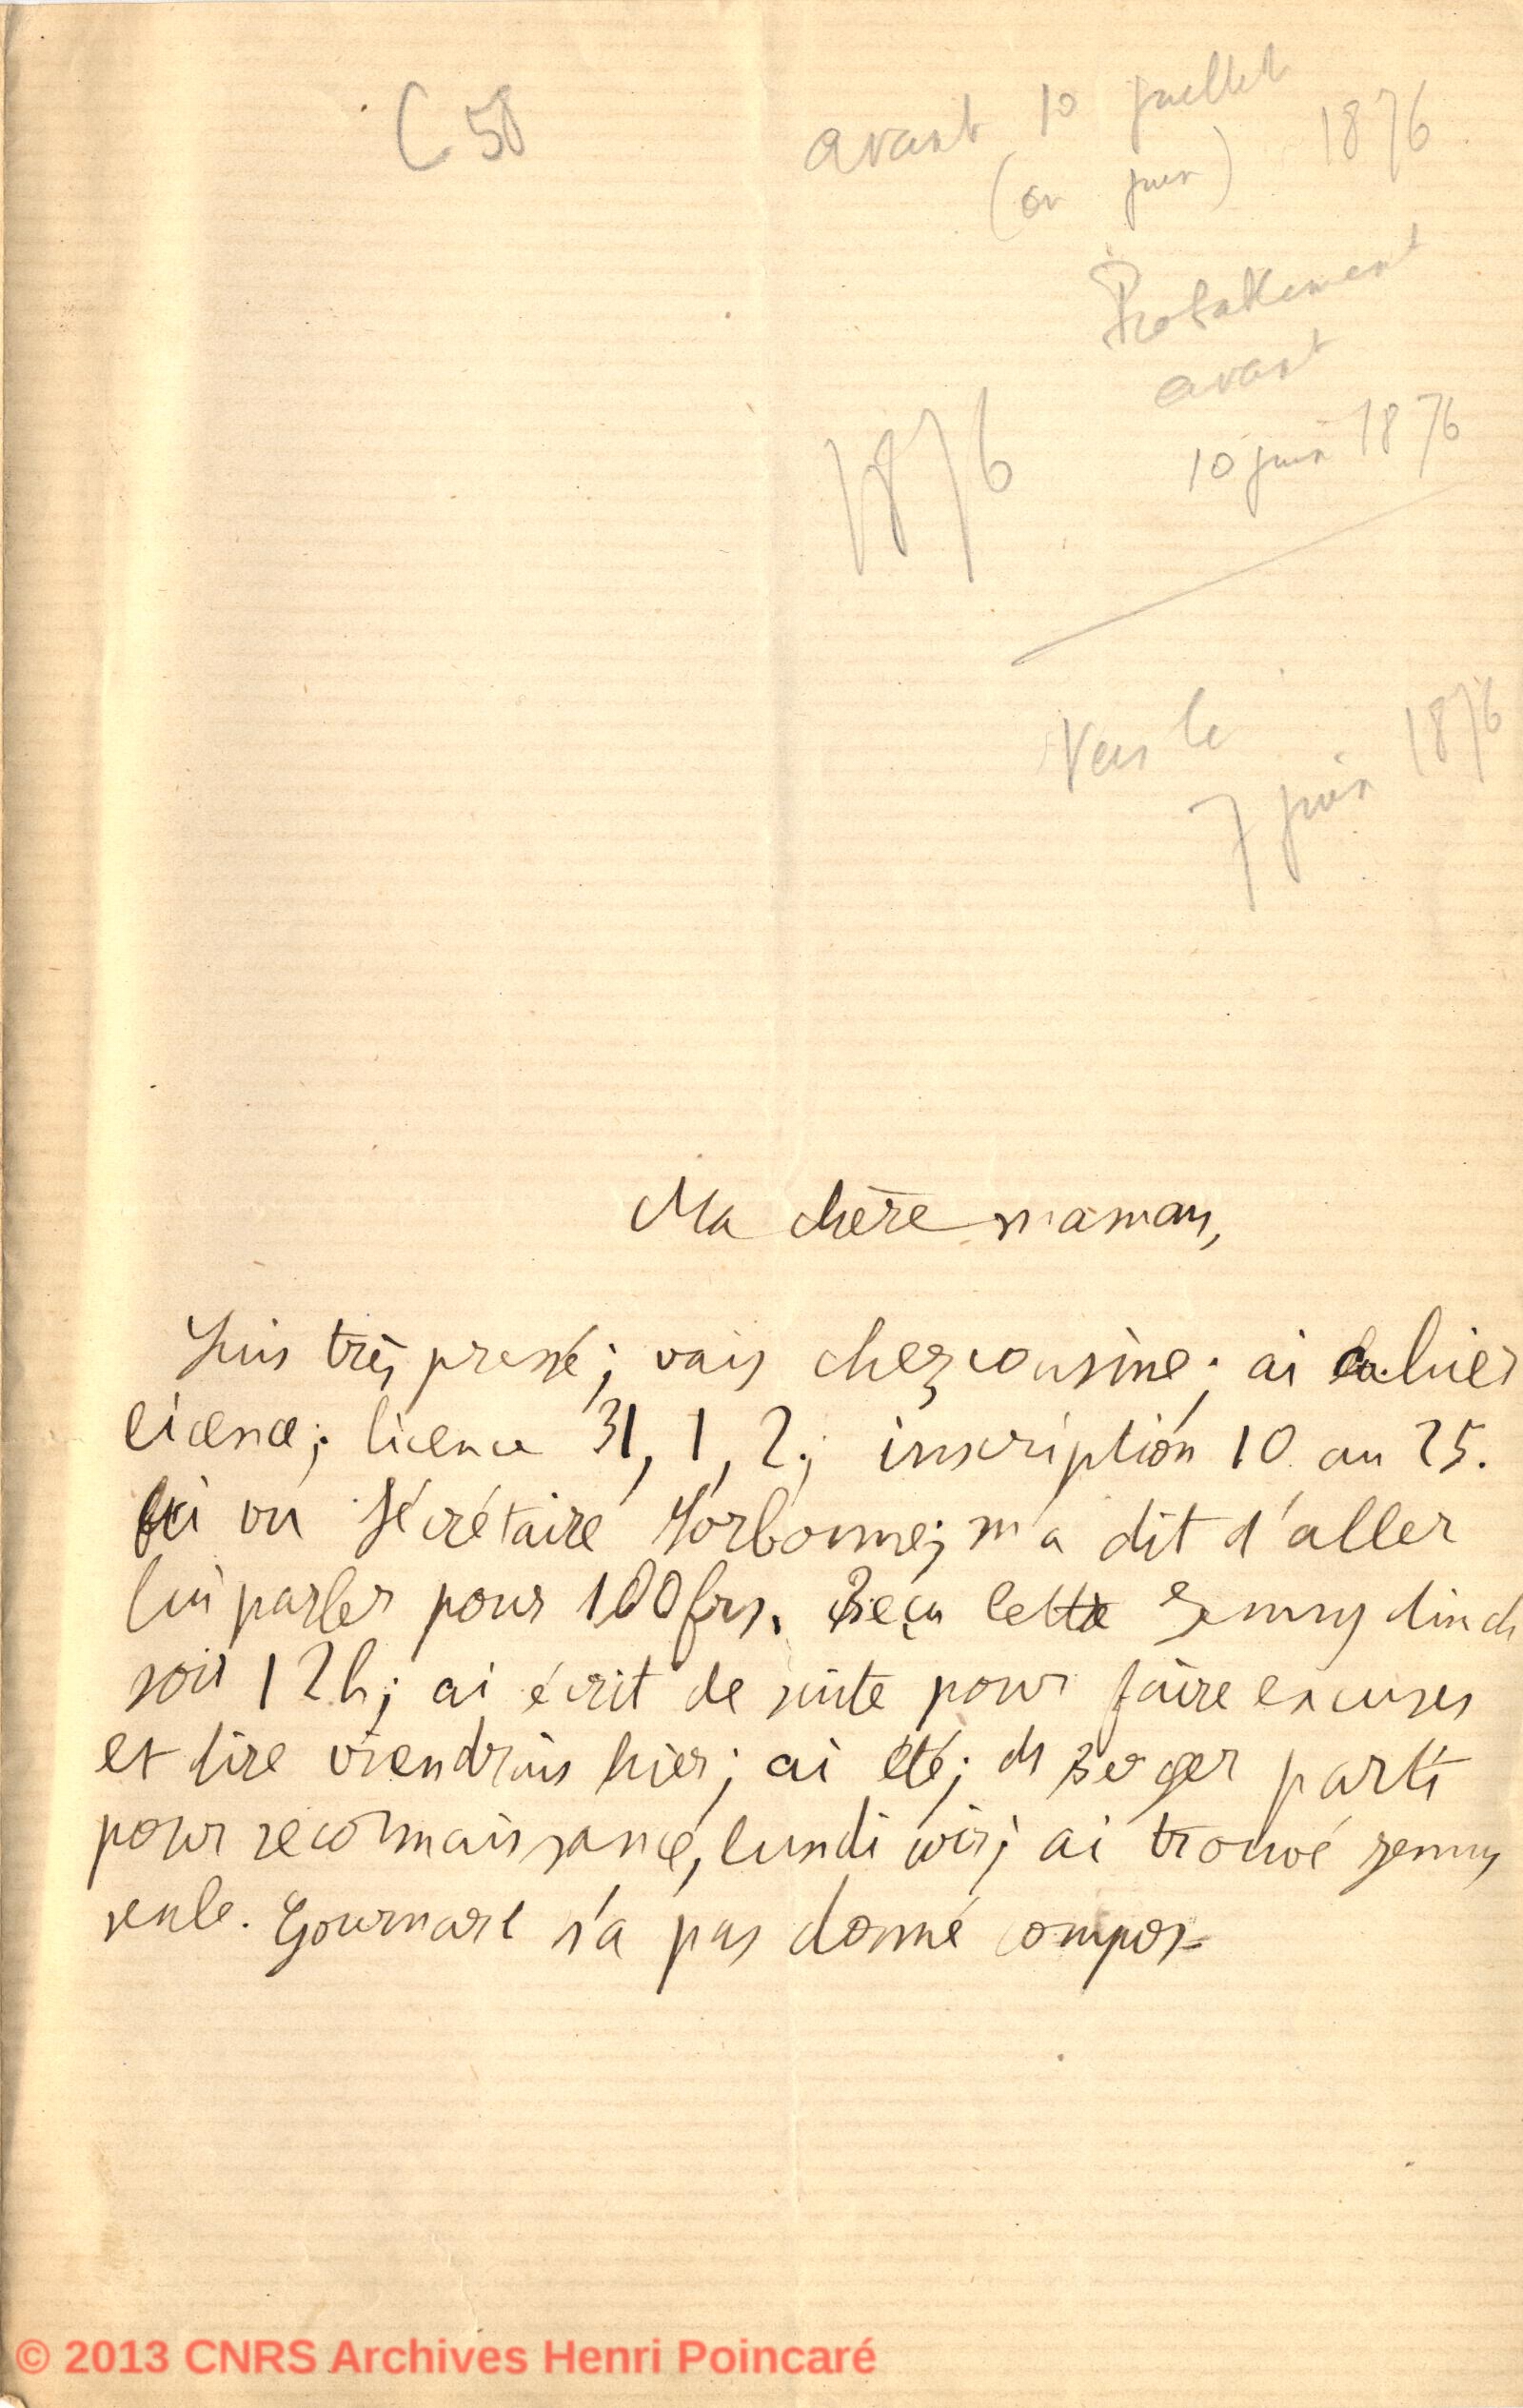 C 58
avant 10 juillet 1876
(ou juin)
Probablement
avant
10 juin 1876
1876
Vers le
7 juin 1876
Ma chère maman,
Suis très pressé; vais chez cousine; ai cahier
licence; licence 31, 1, 2; inscription 10 au 25.
Ai vu Sécrétaire Sorbonne; m'a dit d'aller
lui parler pour 100 frs. Reçu lettre Jenny dimch
soir 12h; ai écrit de suite pour faire excuses
et dire viendrais hier; ai été; ds Berger parti
pour reconnaissance, lundi soir; ai trouvé Jenny
seule. Gournard n'a pas donné compos-
© 2013 CNRS Archives Henri Poincaré